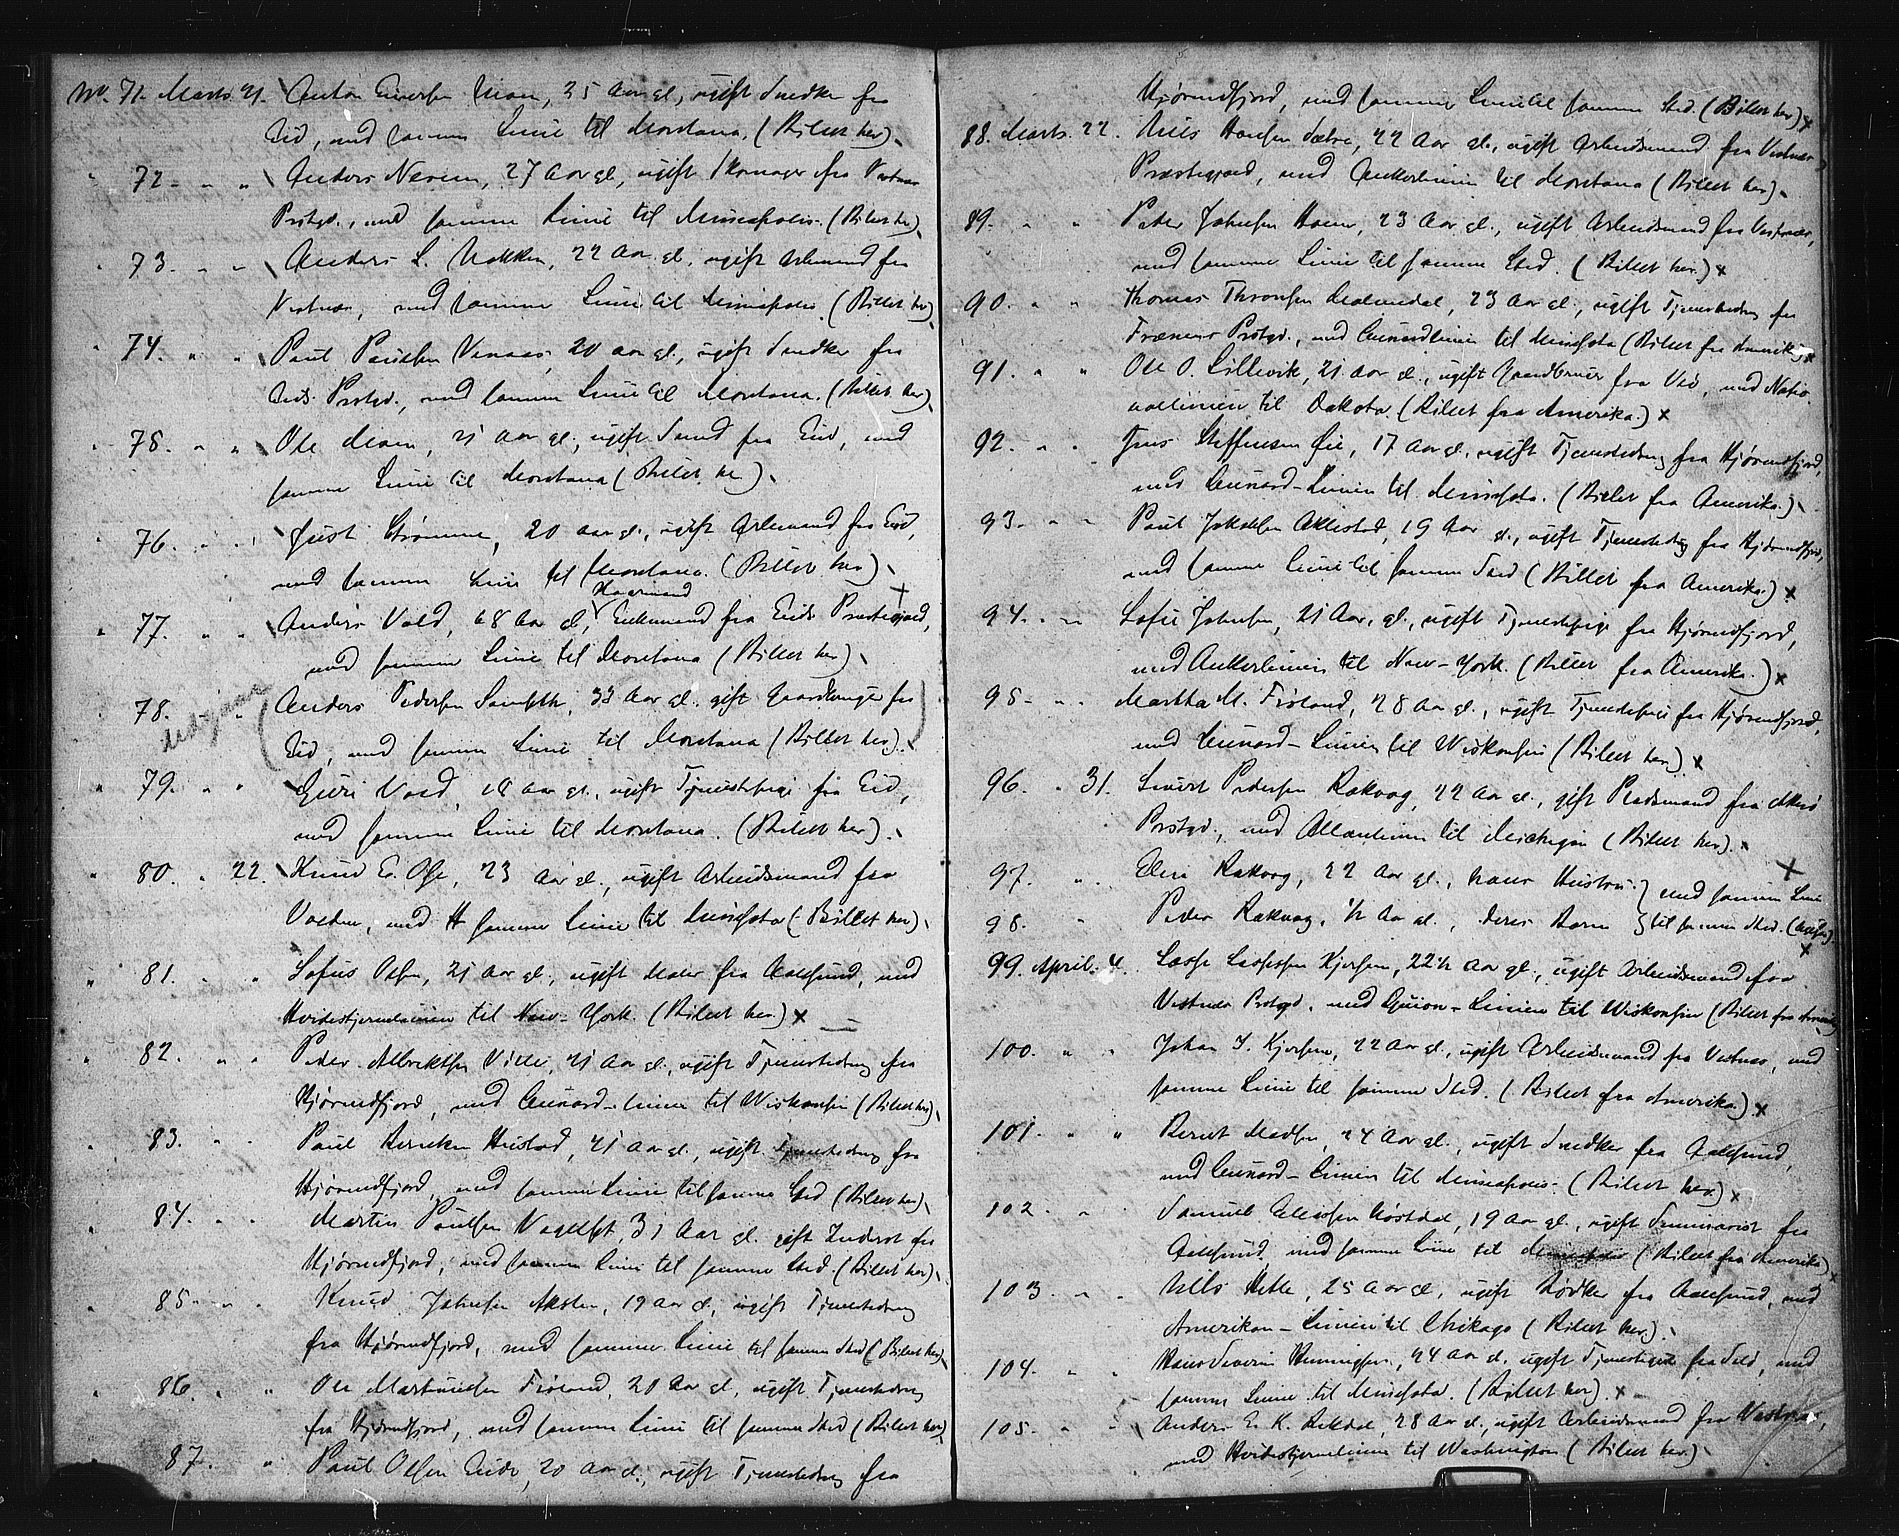 No. 71. Marts 21. Anton Moen, 25 Aar gl., ugift Snedker fra
Eid, med samme Linie til Montana. (Billet her)
72 " " Anders Nerem, 27 Aar gl., ugift Skomager fra Vestnæs
Prstgd., med samme Linie til Minneapolis. (Billet her)
73. " " Anders L. Nakken, 22 Aar gl., ugift Arbmand fra
Vestnæs, med samme Linie til Minneapolis. (Billet her)
74. " " Paul Paulsen Venaas, 20 Aar gl., ugift Snedker fra
Eids Prstgd., med samme Linie til Montana. (Billet her)
75. " " Ole Moen, 21 Aar gl., ugift Smed fra Eid, med
samme Linie til Montana (Billet her)
76. " " Just Strømme, 20 Aar gl., ugift Arbmand fra Eid,
med samme Linie til Montana. (Billet her)
77. " " Anders Vold, 68 Aar gl., Enkemand fra Eids Præstegjæld,
med samme Linie til Montana (Billet her)
78. " Anders Pedersen 33 Aar gl. gift Gaardbruger fra
Eid, med samme Linie til Montana (Billet her)
79. " " Guri Vold, 18 Aar gl., ugift Tjenestepige fra Eid,
med samme Linie til Montana. (Billet her).
80. " 22. Knud E. 23 Aar gl., ugift Arbeidsmand fra
Volden, med samme Linie til Minesota (Billet her)
81. " " Sofus Olsen, 21 Aar gl., ugift Maler fra Aalesund, med
Hvidestjernelinien til New-York. (Billet her) x
82. " " Peder Albrektsen 21 Aar gl., ugift Tjenestedreng fra
Hjørundfjord, med Cunard-Linien til Wiskonsin (Billet her)
83. " " Paul Hustad, 21 Aar gl., ugift Tjenestedreng fra
Hjørundfjord, med samme Linie til samme Sted (Billet her)
84. " " Martin Paulsen 31 Aar gl. gift Inderst fra
Hjørundfjord, med samme Linie til samme Sted. (Billet her)
85 " " Knud Johnsen 19 Aar gl., ugift Tjenestedreng
fra Hjørundfjord, med samme Linie til samme Sted (Billet her)
86. " " Ole Martinusen Frøland, 20 Aar gl., ugift Tjenestedreng
fra Hjørundfjord, med samme Linie til samme Sted (Billet her)
87. " Paul Olsen 20 Aar gl., ugift Tjenestedreng fra
Hjørundfjord, med samme Linie til samme Sted. (Billet her) x
88. Marts 22. Nils Hansen Sætre, 22 Aar gl., ugift Arbeidsmand fra Vestnæs
Præstegjæld, med Ankerlinien til Montana (Billet her)
89. " " Peter Johnsen 23 Aar gl., ugift Arbeidsmand fra Vestnæs,
med samme Linie til samme Sted. (Billet her) x
90. " " Thomas Thronsen Malmedal, 23 Aar gl., ugift Tjenestedreng fra
Frænens Prstgd., med Cunardlinien til Minesota (Billet fra Amerika) x
91. " " Ole O. Lillevik, 21 Aar gl., ugift Gaardbruger fra Veø, med Natio
nallinien til Dakota. (Billet fra Amerika.) x
92. " " Jens Steffensen Øie, 17 Aar gl., ugift Tjenestedreng fra Hjørundfjord,
med Cunard-Linien til Minesota. (Billet fra Amerika.)
93. " " Paul Jakobsen Aklestad, 19 Aar gl., ugift Tjenestedreng fra Hjørundfjord,
med samme Linie til samme Sted (Billet fra Amerika.) x
94. " " Sofie Johnsen, 21 Aar, gl., ugift Tjenestepige fra Hjørundfjord,
med Ankerlinien til New-York. (Billet fra Amerika.) x
95 " " Martha M. Frøland, 28 Aar gl., ugift Tjenestepige fra Hjørundfjord,
med Cunard-Linien til Wiskonsin (Billet her) x
96. " 31. Sivert Pedersen Rækvog, 22 Aar gl., gift Pladsmand fra Akerø
Prstgd., med Allanlinien til Michigan (Billet her).
97. " " Rækvog, 22 Aar gl., hans Hustru } med samme Linie
98. " Peder Rækvog, ½ Aar gl., deres Barn } til samme Sted.
99. April 4. Lasse Kjersem, 22½ Aar gl., ugift Arbeidsmand fra
Vestnæs Prstgd. med Guion-Linien til Wiskonsin (Billet fra Amerika)
100. " " Johan I. Kjersem, 22 Aar gl., ugift Arbeidsmand fra Vestnæs, med
samme Linie til samme Sted. (Billet fra Amerika) x
101. " " Bernt Madsen, 24 Aar gl., ugift Snedker fra Aalesund,
med Cunard-Linien til Minneapolis. (Billet her) x
102. " " Samuel 19 Aar gl., ugift Seminarist fra
Aalesund, med samme Linie til (Billet fra Amerika)
103 " " Nils 25 Aar gl., ugift Bødker fra Aalesund, med
Amerikan-Linien til Chikago (Billet her).
104 " " Hans Severin Henningsen, 24 Aar gl. ugift fra med
samme Linie til Minesota. (Billet her) x
105 " " Anders E. K. Rekdal, 28 Aar gl., ugift Arbeidsmand fra Vestnæs,
med Hvidestjernelinien til Washington (Billet her)